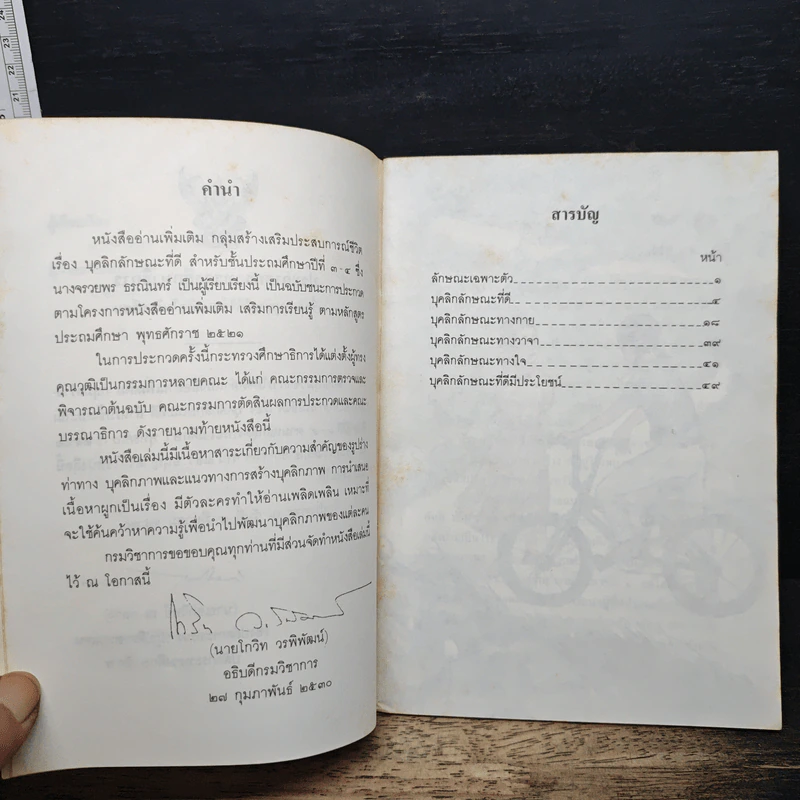 24
23
22
21
คำนำ
หนังสืออ่านเพิ่มเติม กลุ่มสร้างเสริมประสบการณ์ชีวิต
เรื่อง บุคลิกลักษณะที่ดี สำหรับชั้นประถมศึกษาปีที่ ๓-๔ ซึ่ง
นางจรวยพร ธรณินทร์ เป็นผู้เรียบเรียงนี้ เป็นฉบับชนะการประกวด
ตามโครงการหนังสืออ่านเพิ่มเติม เสริมการเรียนรู้ ตามหลักสูตร
ประถมศึกษา พุทธศักราช ๒๕๒๑
ในการประกวดครั้งนี้กระทรวงศึกษาธิการได้แต่งตั้งผู้ทรง
คุณวุฒิเป็นกรรมการหลายคณะ ได้แก่ คณะกรรมการตรวจและ
พิจารณาต้นฉบับ คณะกรรมการตัดสินผลการประกวดและคณะ
บรรณาธิการ ดังรายนามท้ายหนังสือนี้
หนังสือเล่มนี้มีเนื้อหาสาระเกี่ยวกับความสำคัญของรูปร่าง
ท่าทาง บุคลิกภาพและแนวทางการสร้างบุคลิกภาพ การนำเสนอ
เนื้อหาผูกเป็นเรื่อง มีตัวละครทำให้อ่านเพลิดเพลิน เหมาะที่
จะใช้ค้นคว้าหาความรู้เพื่อนำไปพัฒนาบุคลิกภาพของแต่ละคน
กรมวิชาการขอขอบคุณทุกท่านที่มีส่วนจัดทำหนังสือเล่มนี้
ไว้ ณ โอกาสนี้
(นายโกวิท วรพิพัฒน์)
อธิบดีกรมวิชาการ
๒๗ กุมภาพันธ์ ๒๕๓๐
สารบัญ
หน้า
ลักษณะเฉพาะตัว ๑
บุคลิกลักษณะที่ดี ๔
บุคลิกลักษณะทางกาย ๑๘
บุคลิกลักษณะทางวาจา ๓๙
บุคลิกลักษณะทางใจ ๔๑
บุคลิกลักษณะที่ดีมีประโยชน์ ๔๙